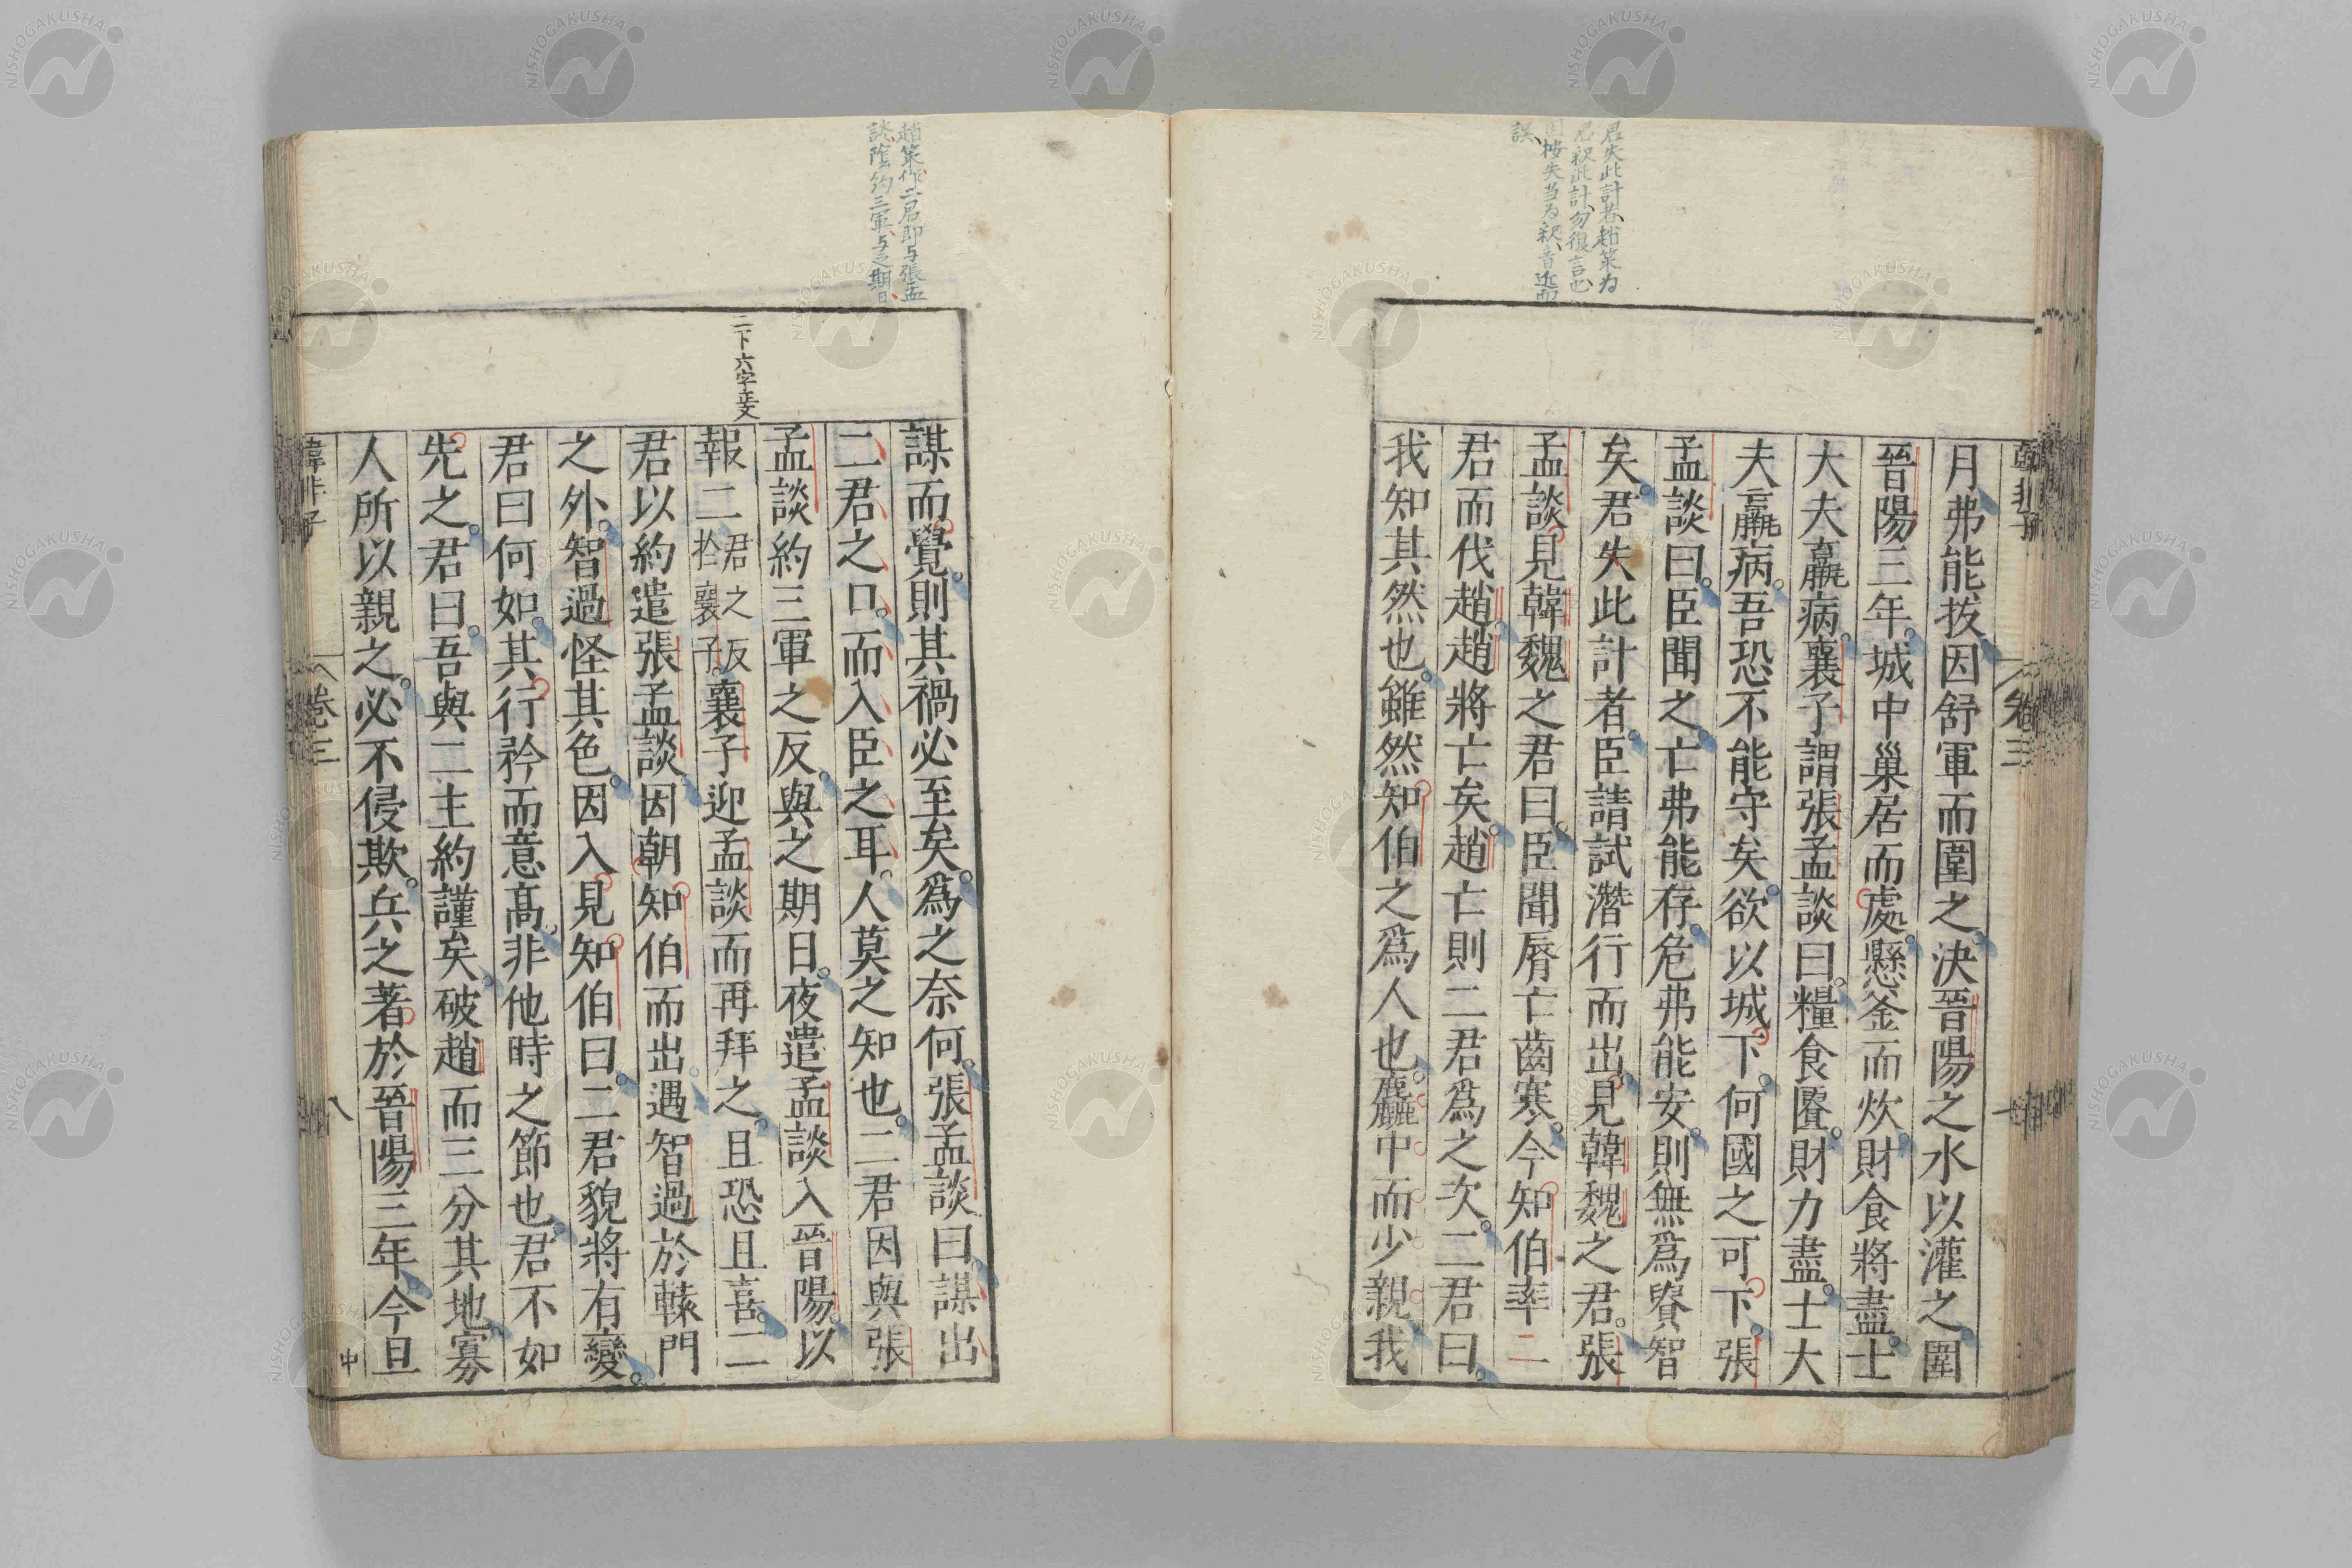 君失此計者、趙策為
君釈此計、勿復言也
按失当為釈、音近而
誤
韓非子
卷三
月弗能拔因舒軍而圍之決晉陽之水以灌之圍
晉陽三年城中巢居而處懸釜而炊財食將盡士
大夫羸病襄子謂張孟談曰糧食匱財力盡士大
夫羸病吾恐不能守矣欲以城下何國之可下張
孟談曰臣聞之亡弗能存危弗能安則無爲貴智
矣君失此計者臣請試潛行而出見韓魏之君張
孟談見韓魏之君曰臣聞脣亡齒寒今知伯率二
君而伐趙趙將亡矣趙亡則二君爲之次二君曰
我知其然也雖然知伯之爲人也麤中而少親我
趙策作二君即与張孟
談陰約三軍与之期日
二下六字註文
謀而覺則其禍必至矣爲之奈何張孟談曰謀出
二君之口而入臣之耳人莫之知也二君因與張
孟談約三軍之反與之期日夜遣孟談入晉陽以
報二君之反於襄子襄子迎孟談而再拜之且恐且喜二
君以約遣張孟談因朝知伯而出遇智過於轅門
之外智過怪其色因入見知伯曰二君貌將有變
君曰何如其行矜而意高非他時之節也君不如
先之君曰吾與二主約謹矣破趙而三分其地寡
人所以親之必不侵欺兵之著於晉陽三年今旦
韓非子
卷三
八
中
NISHOGAKUSHA